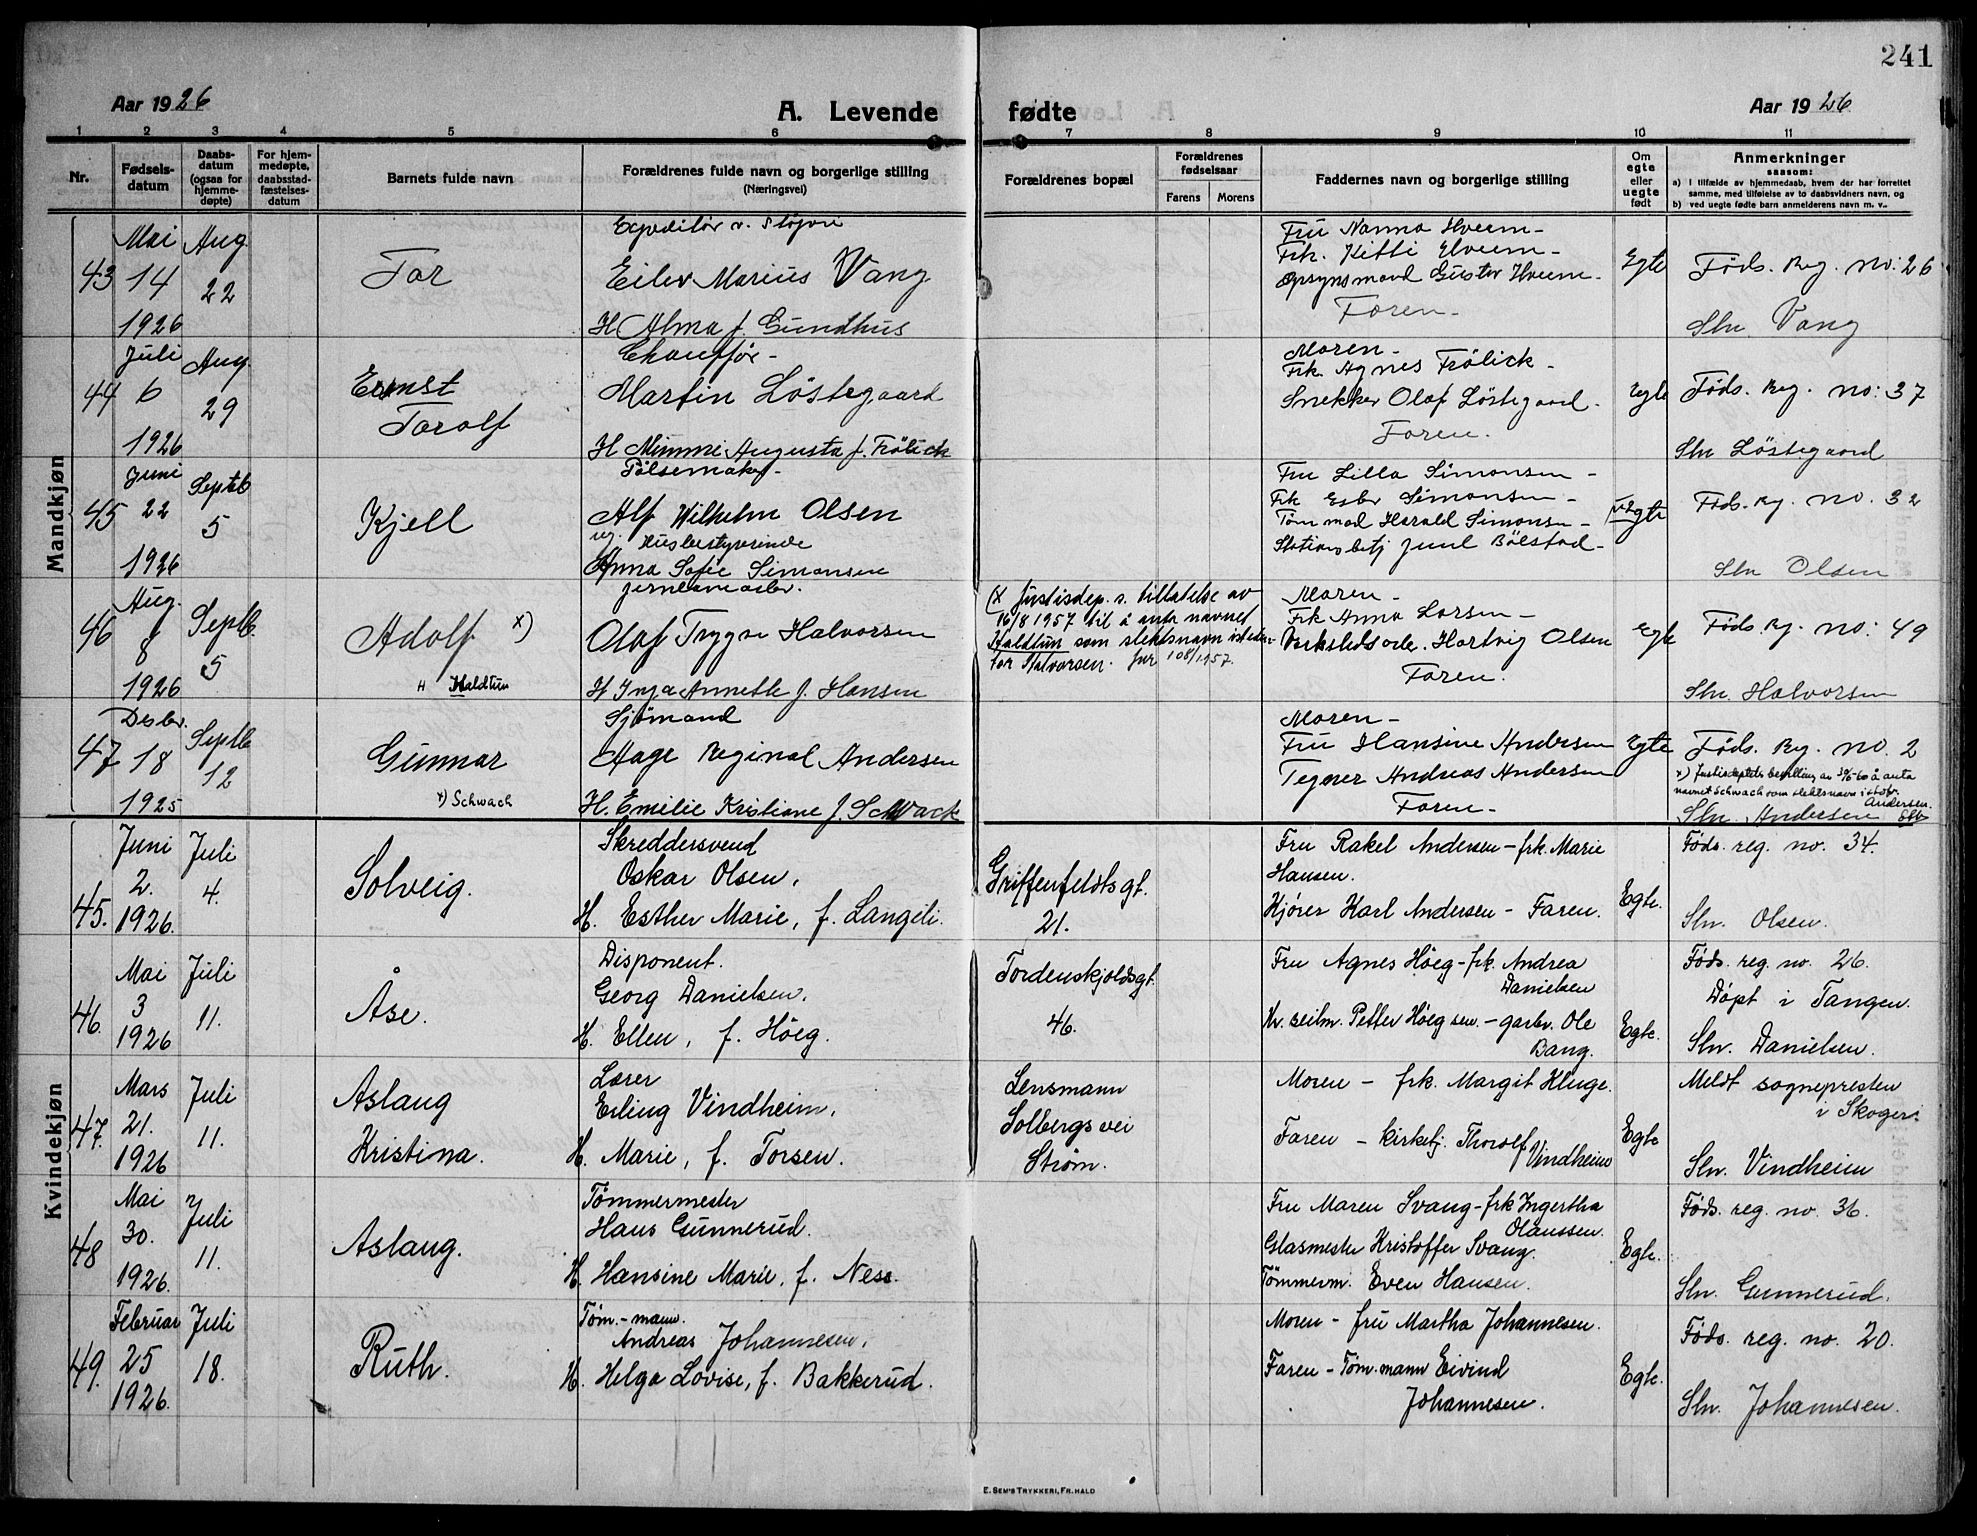 241
Aar 1926
A. Levende fødte
Aar 1926
1 2 3 4 5 6 7 8 9 10 11
Nr.
Fødsels-
datum
Daabs-
datum
(ogsaa for
hjemme-
døpte)
For hjem-
medøpte,
daabsstad-
fæstelses-
datum
Barnets fulde navn
Forældrenes fulde navn og borgerlige stilling
(Næringsvei)
Forældrenes bopæl
Forældrenes
fødselsaar
Farens Morens
Faddernes navn og borgerlig stilling
Om
egte
eller
uegte
født
Anmerkninger
saasom:
a) i tilfælde av hjemmedaab, hvem der har forrettet
samme, med tilføielse av to daabsvidners navn, og
b) ved uegte fødte barn anmelderens navn m. v..
Mandkjøn
43
Mai
14
1926
Aug.
22
Tor
Expeditør v. Sløyve
Eilev Marius Vang
H Alma f. Gundhus
Fru Nanna Hveem-
Frk. Kitti Hveem-
Opsynsmand Gustav Hveem-
Faren-
Egte
Føds. Reg. no: 26
Sln Vang
44
Juli
6
1926
Aug.
29
Ernst
Torolf
Chauffør-
Martin Løstegaard
H Mimmi Augusta f. Frölick
Moren-
Frk. Agnes Frölick-
Snekker Olaf Løstegaard-
Faren.
Egte
Føds. Reg. no: 37
Sln Løstegaard
45
Juni
22
1926
Septb
5
Kjell
Pølsemaker-
Alf Wilhelm Olsen
ug. Husbestyrerinde
Anna Sofie Simonsen
Fru Lilla Simonsen-
Frk Ester Simonsen-
Tøm mad Harald Simonsen-
Stationsbetj Juul Bölstad-
Uegte
Føds. Reg. no. 32
Sln Olsen
46
Aug.
8
1926
Septb.
5
Adolf x)
H Haldtun
jernbanearb.
Olaf Trygve Halvorsen
H Inga Annette f. Hansen
(x Justisdep.s. tillatelse av
16/8 1957 til å anta navnet
Haldtun som slektsnavn isteden-
for Halvorsen. Jnr 108/1957.
Moren-
Frk Anna Larsen-
Verkstedsarb. Hartvig Olsen
Faren.
Egte
Føds. Rg. no: 49
Sln. Halvorsen
47
Desbr.
18
1925
Septb
12
Gunnar
x) Schwach
Sjømand
Aage Reginal Andersen
H. Emilie Kristiane f. Schwack
Moren-
Fru Hansine Andersen
Tegner Andreas Andersen
Faren-
Egte
Føds. Rg. no. 2
navnet Schwach som slektsnavn istedf.
Andersen.
Slн. Andersen
Kvindekjøn
45.
Juni
2.
1926.
Juli
4.
Solveig.
Skreddersvend
Oskar Olsen,
H. Esther Marie, f. Langeli.
Griffenfeldtsgt.
21.
Fru Rakel Andersen-frk. Marie
Hansen.
Kjører Karl Andersen- Faren.
Egte.
Føds. reg. no. 34.
Sln. Olsen.
46.
Mai
3
1926
Juli
11.
Åse.
Disponent.
Georg Danielsen,
H. Ellen, f. Höeg.
Tordenskjoldsgt.
46.
Fru Agnes Höeg-frk. Andrea
Danielsen
Hr. seilm. Petter Höeg sen.-garbr. Ole
Bang.
Egte.
Føds. reg. no. 26.
Døpt i Tangen.
Sln. Danielsen.
47.
Mars
21.
1926
Juli
11.
Aslaug
Kristina.
Lærer
Erling Vindheim,
H. Marie, f. Torsen.
Lensmann
Solbergs vei
Strøm.
Moren - frk. Margit Kluge.
Faren - kirketj. Thorolf
Vindheim
Egte
Meldt sognepresten
i Skoger.
Sln. Vindheim
48
Mai
30.
1926.
Juli
11.
Aslaug.
Tømmermester
Hans Gunnerud.
H. Hansine Marie, f. Ness.
Fru Maren Svang-frk Ingertha
Olaussen.
Glasmester Kristoffer Svang.
Tømmerm. Even Hansen.
Egte.
Føds. reg. no. 36.
Sln. Gunnerud.
49.
Februar
25
1926.
Juli
18.
Ruth.
Tøm.-mann.
Andreas Johannesen,
H. Helga Lovise, f. Bakkerud.
Moren - fru Martha Johannesen.
Faren - Tøm.mann Eivind
Johannesen.
Egte.
Føds. reg. no. 20.
Sln. Johannesen.
E. SEM'S TRYKKERI, FR.HALD